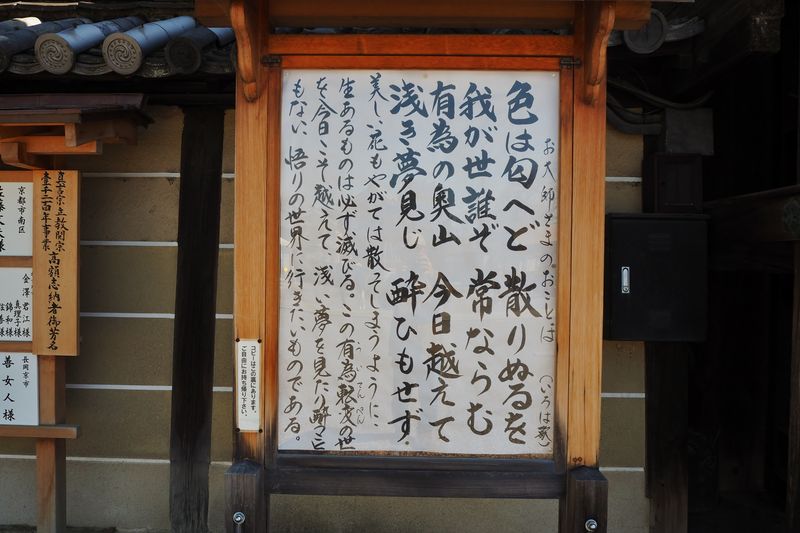 お大師さまのおことば (いろは歌)
色は匂へど 散りぬるを
我が世誰ぞ 常ならむ
有為の奥山 今日越えて
浅き夢見じ 酔ひもせず
美しい花もやがては散ってしまうように、
生あるものは必ず滅びる。この有為転変の世
を今日こそ越えて、浅い夢を見たり酔うこと
もない、悟りの世界に行きたいものである。
うい てんぺん
コピーはこの裏にあります。
ご自由にお持ち帰り下さい。
真言宗立教開宗
壹千二百年事業 高額志納者御芳名
京都市南区
金澤 君江様
真理子様
錦和様
長岡京市
善女人様